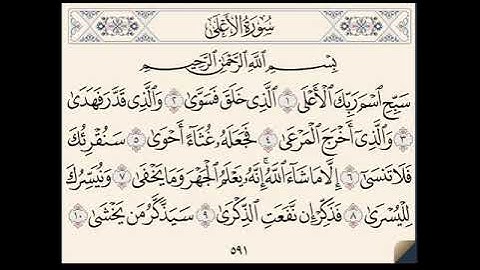 سُورَةُ الأَعْلَى
بِسْمِ اللَّهِ الرَّحْمَٰنِ الرَّحِيمِ
سَبِّحِ اسْمَ رَبِّكَ الْأَعْلَى ١ الَّذِي خَلَقَ فَسَوَّىٰ ٢ وَالَّذِي قَدَّرَ فَهَدَىٰ
٣ وَالَّذِي أَخْرَجَ الْمَرْعَىٰ ٤ فَجَعَلَهُ غُثَاءً أَحْوَىٰ ٥ سَنُقْرِئُكَ
فَلَا تَنسَىٰ ٦ إِلَّا مَا شَاءَ اللَّهُ إِنَّهُ يَعْلَمُ الْجَهْرَ وَمَا يَخْفَىٰ ٧ وَنُيَسِّرُكَ
لِلْيُسْرَىٰ ٨ فَذَكِّرْ إِن نَّفَعَتِ الذِّكْرَىٰ ٩ سَيَذَّكَّرُ مَن يَخْشَىٰ ١٠
٥٩١